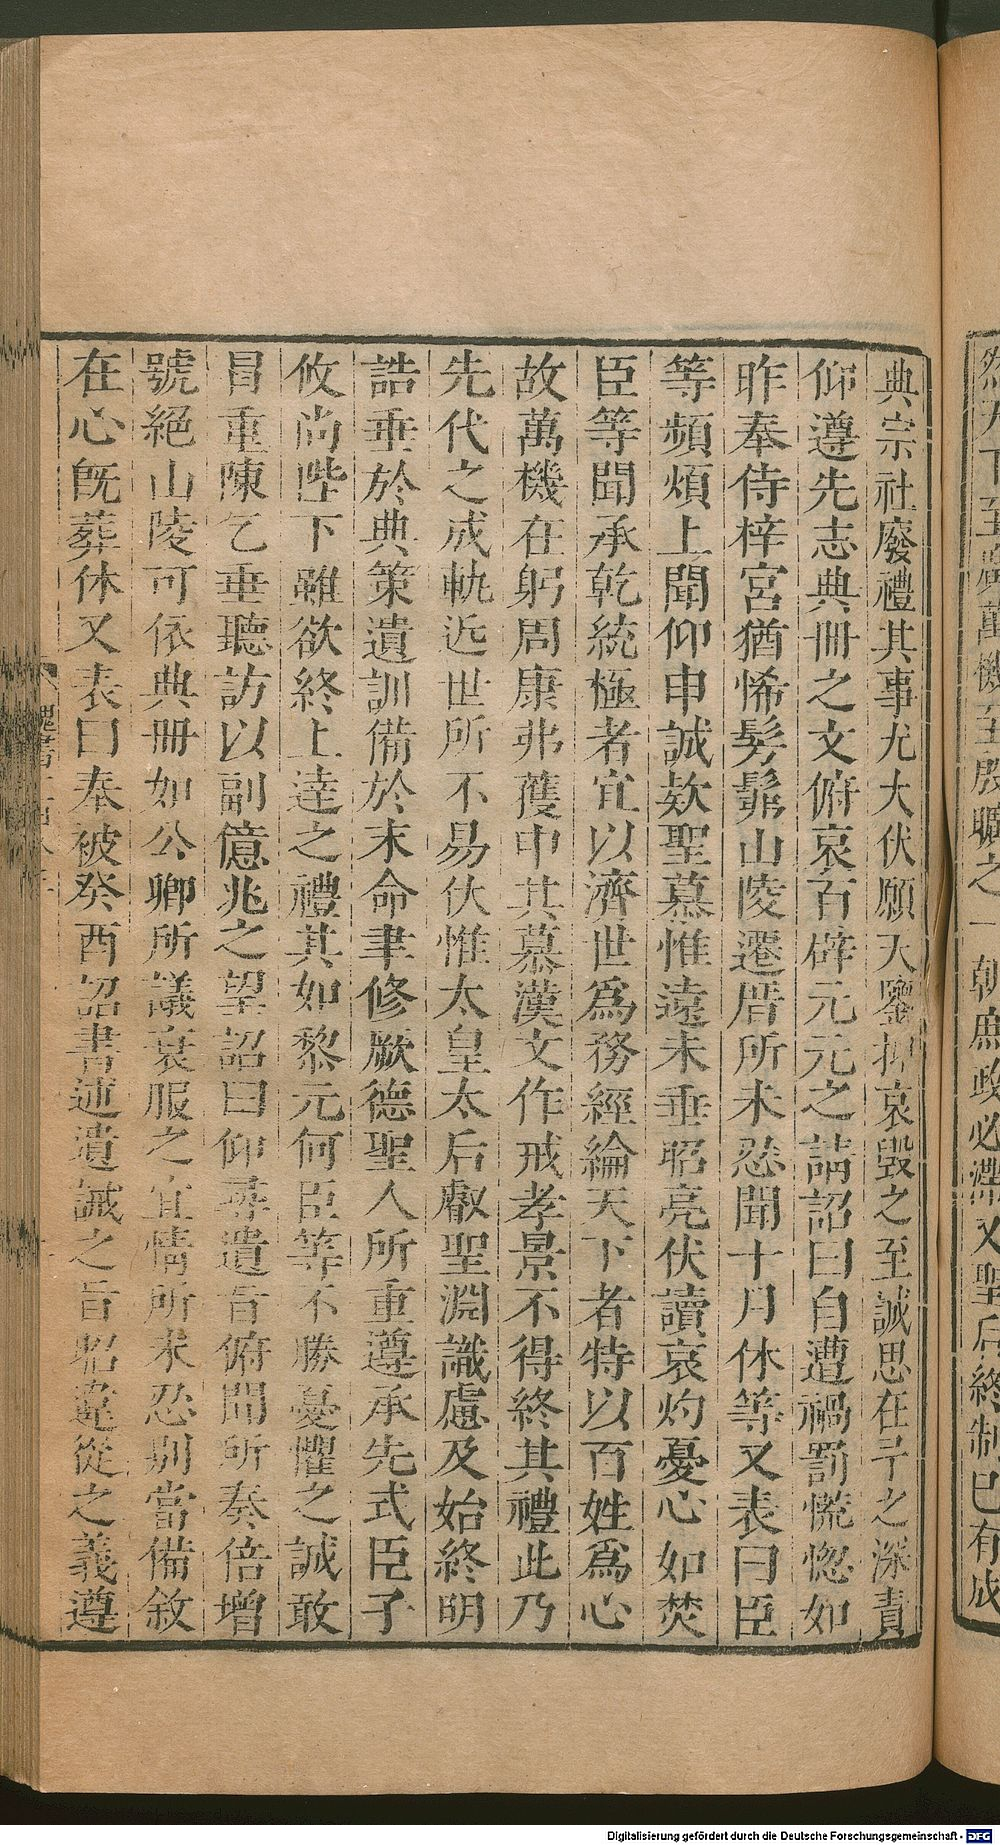 然九
至
萬機
至殷曠之一朝庶政必滯又聖后終制已有成
典宗社廢禮其事尤大伏願天鑒抑哀毀之至誠思在予之深責
仰遵先志典冊之文俯哀百辟元元之請詔曰自遭禍罰慌惚如
昨奉侍梓宮猶悕髣髴山陵遷厝所未忍聞十月休等又表曰臣
等頻煩上聞仰申誠欵聖慕惟遠未垂昭亮伏讀哀灼憂心如焚
臣等聞承乾統極者宜以濟世爲務經綸天下者特以百姓爲心
故萬機在躬周康弗獲申其慕漢文作戒孝景不得終其禮此乃
先代之成軌近世所不易伏惟太皇太后叡聖淵識慮及始終明
誥垂於典策遺訓備於末命聿修厥德聖人所重遵承先式臣子
攸尚陛下雖欲終上達之禮其如黎元何臣等不勝憂懼之誠敢
冒重陳乞垂聽訪以副億兆之望詔曰仰尋遺旨俯聞所奏倍增
號絕山陵可依典冊如公卿所議衰服之宜情所未忍別當備敘
在心旣葬休又表曰奉被癸酉詔書述遺誡之旨昭違從之義遵
Digitalisierung gefördert durch die Deutsche Forschungsgemeinschaft - DFG